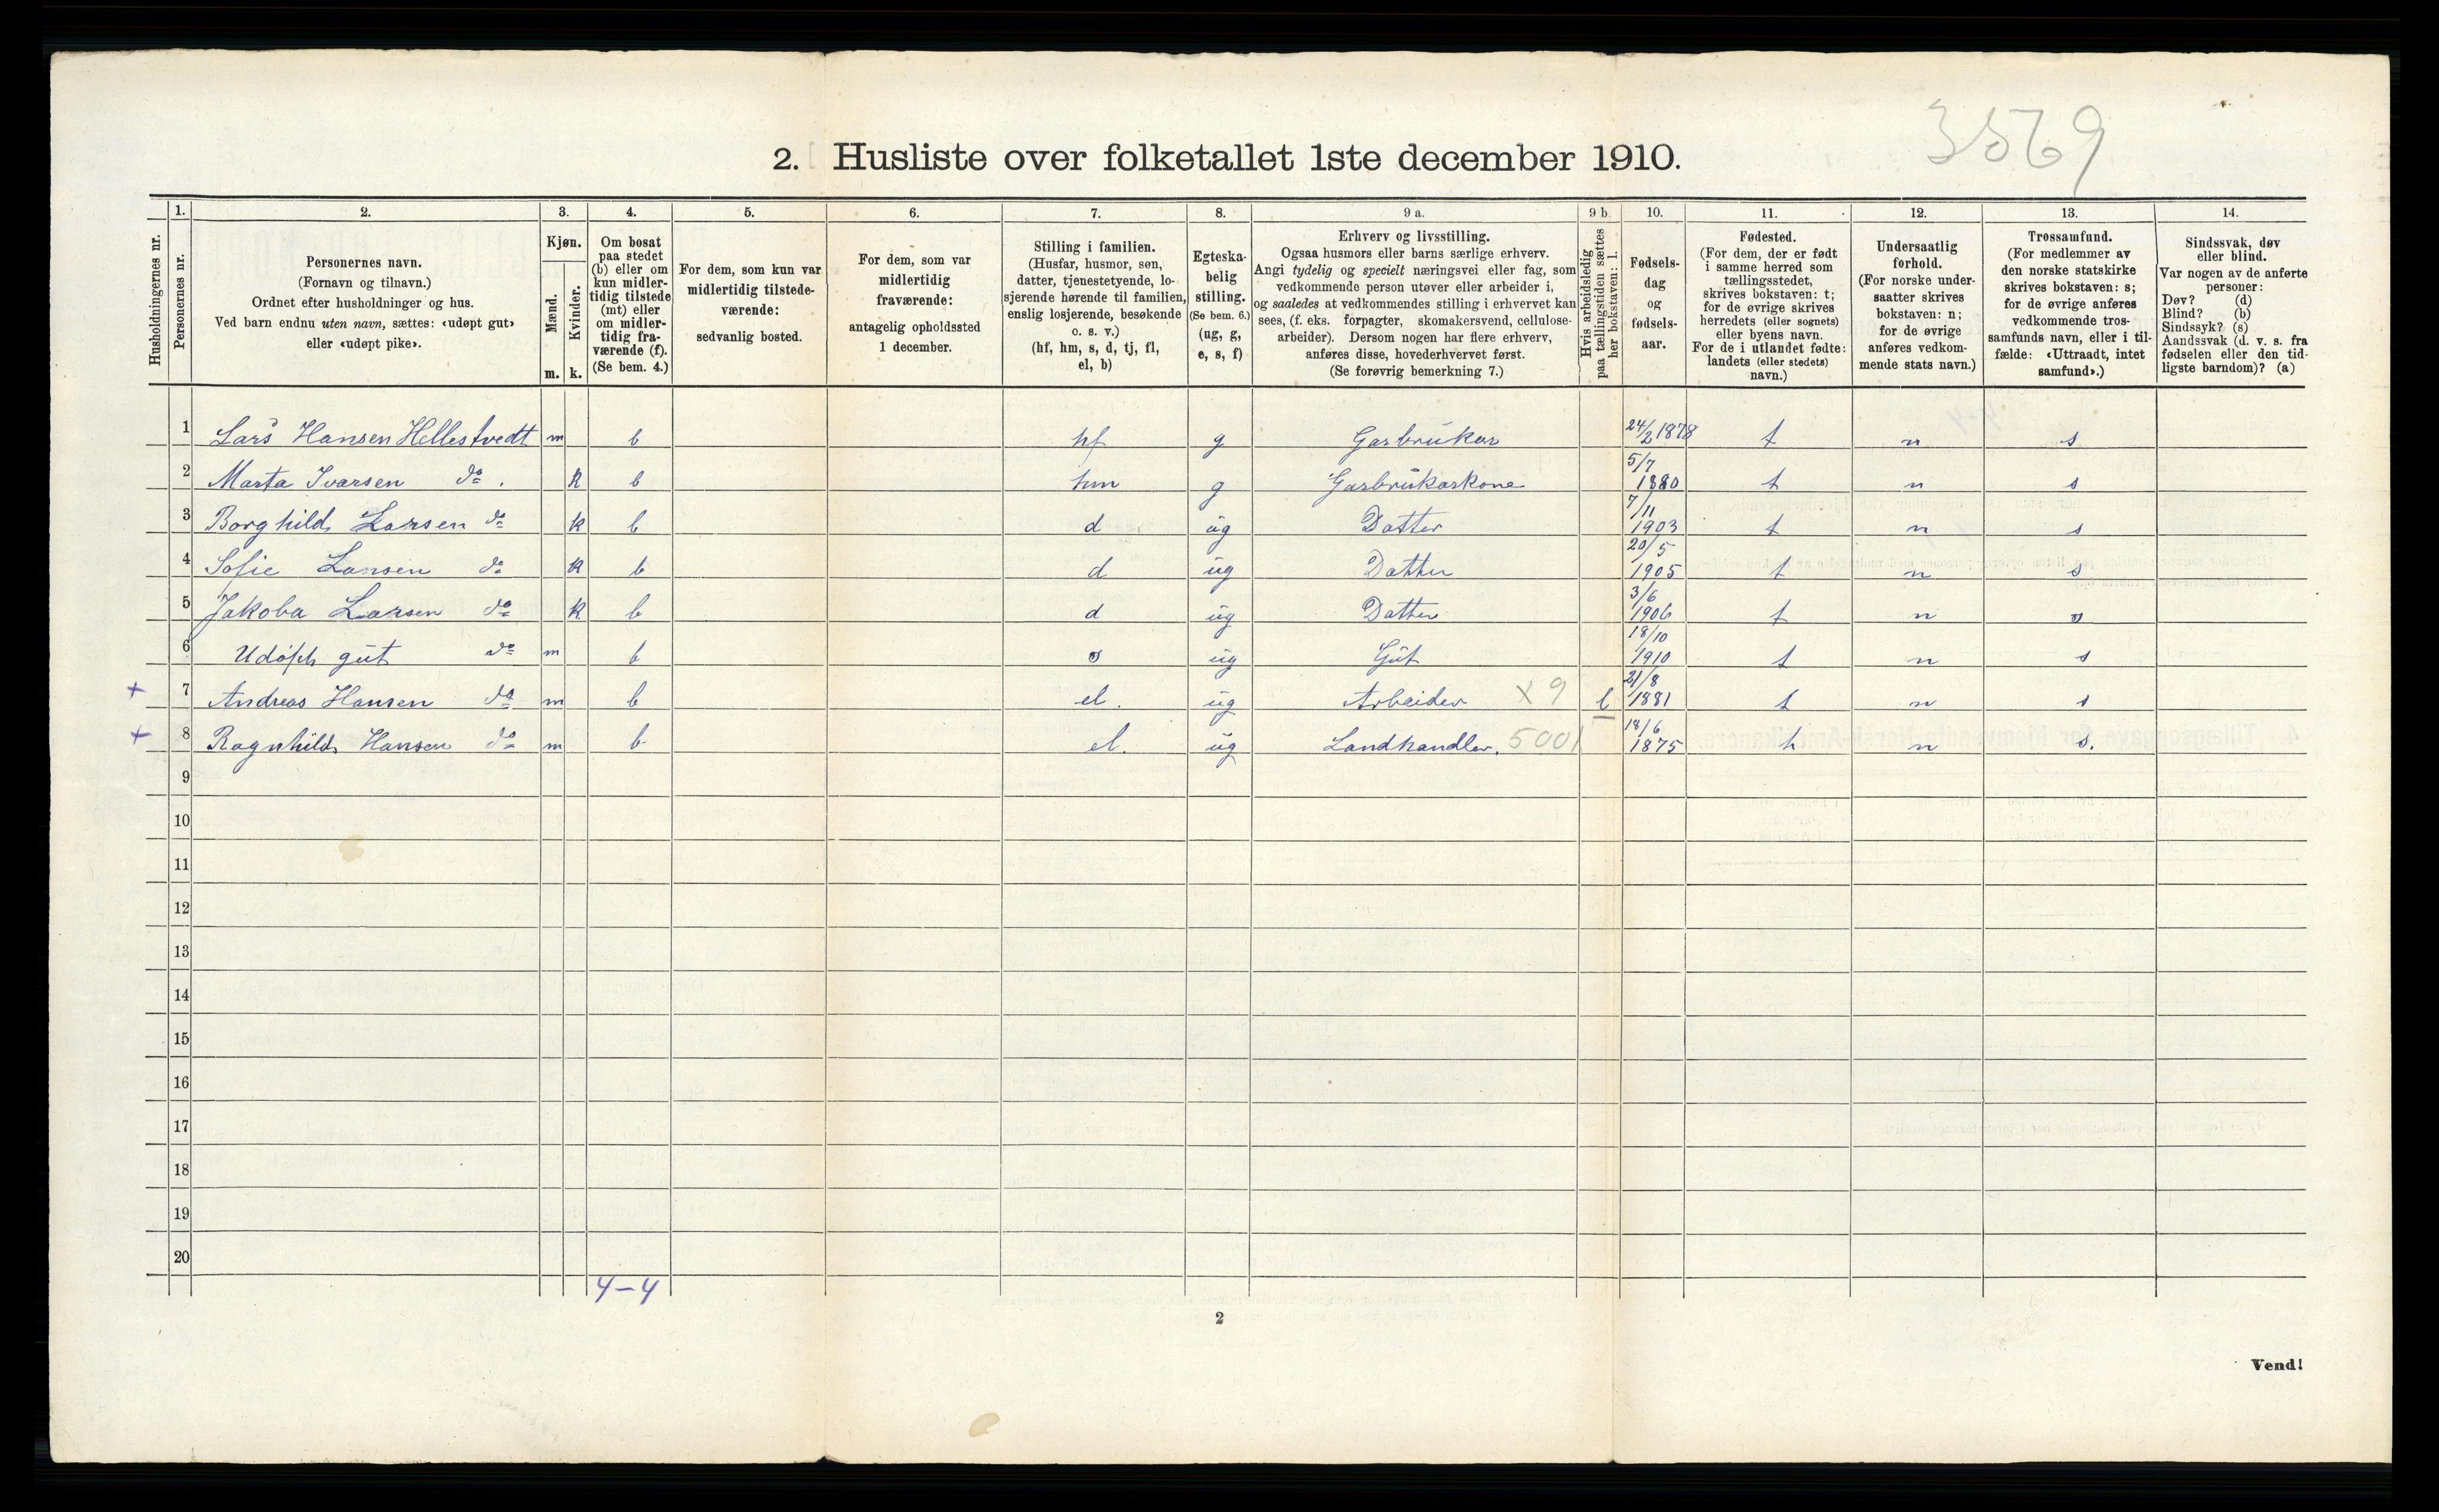 3569
2. Husliste over folketallet 1ste december 1910.
Husholdningernes nr.
1. Personernes nr.
2. Personernes navn.
(Fornavn og tilnavn.)
Ordnet efter husholdninger og hus.
Ved barn endnu uten navn, sættes: «udøpt gut»
eller «udøpt pike».
3. Kjøn.
Mænd. m.
Kvinder. k.
4. Om bosat
paa stedet
(b) eller om
kun midler-
tidig tilstede
(mt) eller
om midler-
tidig fra-
værende (f).
(Se bem. 4.)
5. For dem, som kun var
midlertidig tilstede-
værende:
sedvanlig bosted.
6. For dem, som var
midlertidig
fraværende:
antagelig opholdssted
1 december.
7. Stilling i familien.
(Husfar, husmor, søn,
datter, tjenestetyende, lo-
sjerende hørende til familien,
enslig losjerende, besøkende
o. s. v.)
(hf, hm, s, d, tj, fl,
el, b)
8. Egteska-
belig
stilling.
(Se bem. 6.)
(ug, g,
e, s, f)
9 a. Erhverv og livsstilling.
Ogsaa husmors eller barns særlige erhverv.
Angi tydelig og specielt næringsvei eller fag, som
vedkommende person utøver eller arbeider i,
og saaledes at vedkommendes stilling i erhvervet kan
sees, (f. eks. forpagter, skomakersvend, cellulose-
arbeider). Dersom nogen har flere erhverv,
anføres disse, hovederhvervet først.
(Se forøvrig bemerkning 7.)
9 b. Hvis arbeidsledig
paa tællingstiden sættes
her bokstaven: l.
10. Fødsels-
dag
og
fødsels-
aar.
11. Fødested.
(For dem, der er født
i samme herred som
tællingsstedet,
skrives bokstaven: t;
for de øvrige skrives
herredets (eller sognets)
eller byens navn.
For de i utlandet fødte:
landets (eller stedets)
navn.)
12. Undersaatlig
forhold.
(For norske under-
saatter skrives
bokstaven: n;
for de øvrige
anføres vedkom-
mende stats navn.)
13. Trossamfund.
(For medlemmer av
den norske statskirke
skrives bokstaven: s;
for de øvrige anføres
vedkommende tros-
samfunds navn, eller i til-
fælde: «Uttraadt, intet
samfund».)
14. Sindssvak, døv
eller blind.
Var nogen av de anførte
personer:
Døv? (d)
Blind? (b)
Sindssyk? (s)
Aandssvak (d. v. s. fra
fødselen eller den tid-
ligste barndom)? (a)
1 Lars Hansen Hellestvedt m b hf g Garbrukar 24/2 1878 t n s
2 Marta Ivarsen do. k b hm g Garbrukarkone 5/7 1880 t n s
3 Borghild Larsen do k b d ug Datter 7/11 1903 t n s
4 Sofie Larsen do k b d ug Datter 20/5 1905 t n s
5 Jakoba Larsen do k b d ug Datter 3/6 1906 t n s
6 Udøpt gut do m b s ug Gut 18/10 1910 t n s
+ 7 Andreas Hansen do m b el. ug Arbeider x 9 l 21/8 1881 t n s
+ 8 Ragnhild Hansen do m b el. ug Landhandler. 5001 18/6 1875 t n s.
9
10
11
12
13
14
15
16
17
18
19
20
4-4
2
Vend!